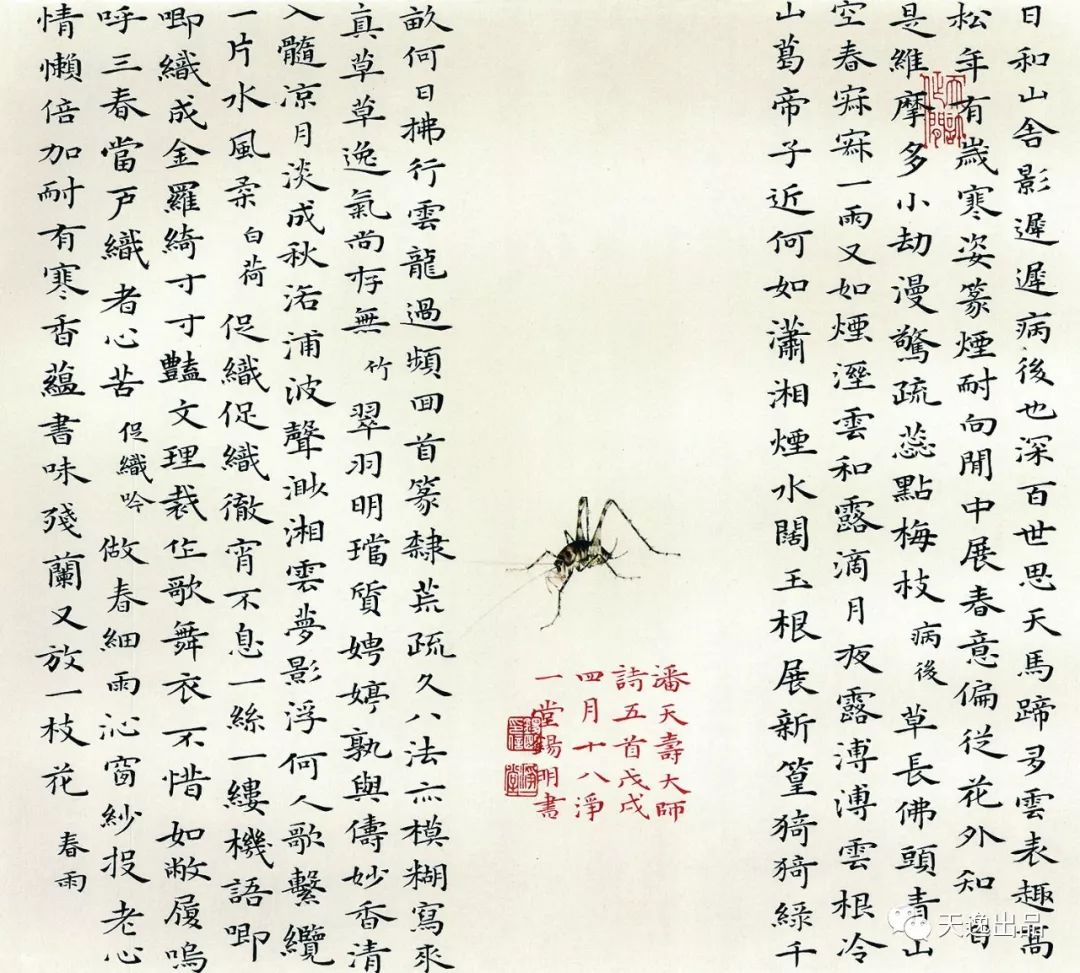 日和山舍影遲遲病後也深百世思天馬蹄多雲表趣髙
松年有歲寒姿篆煙耐向閒中展春意偏從花外知自
是維摩多小劫漫驚疏蕊點梅枝 病後 草長佛頭青山
空春寂寂一雨又如煙溼雲和露滴月夜露漙漙雲根冷
山葛帝子近何如瀟湘煙水闊玉根展新篁猗猗綠千
畝何日拂行雲龍過頻回首篆隸荒疏久八法亦模糊寫來
真草草逸氣尚存無 竹 翠羽明璫質娉婷孰與儔妙香清
入髓涼月淡成秋洛浦波聲渺湘雲夢影浮何人歌繫纜
一片水風柔 白荷 促織促織徹宵不息一絲一縷機語唧
唧織成金羅綺寸寸豔文理裁作歌舞衣不惜如敝履嗚
呼三春當戶織者心苦 促織吟 做春細雨沁窗紗投老心
情懶倍加耐有寒香蘊書味殘蘭又放一枝花 春雨
潘天壽大師
詩五首戊戌
四月十八淨
一堂錫明書
天逸出品